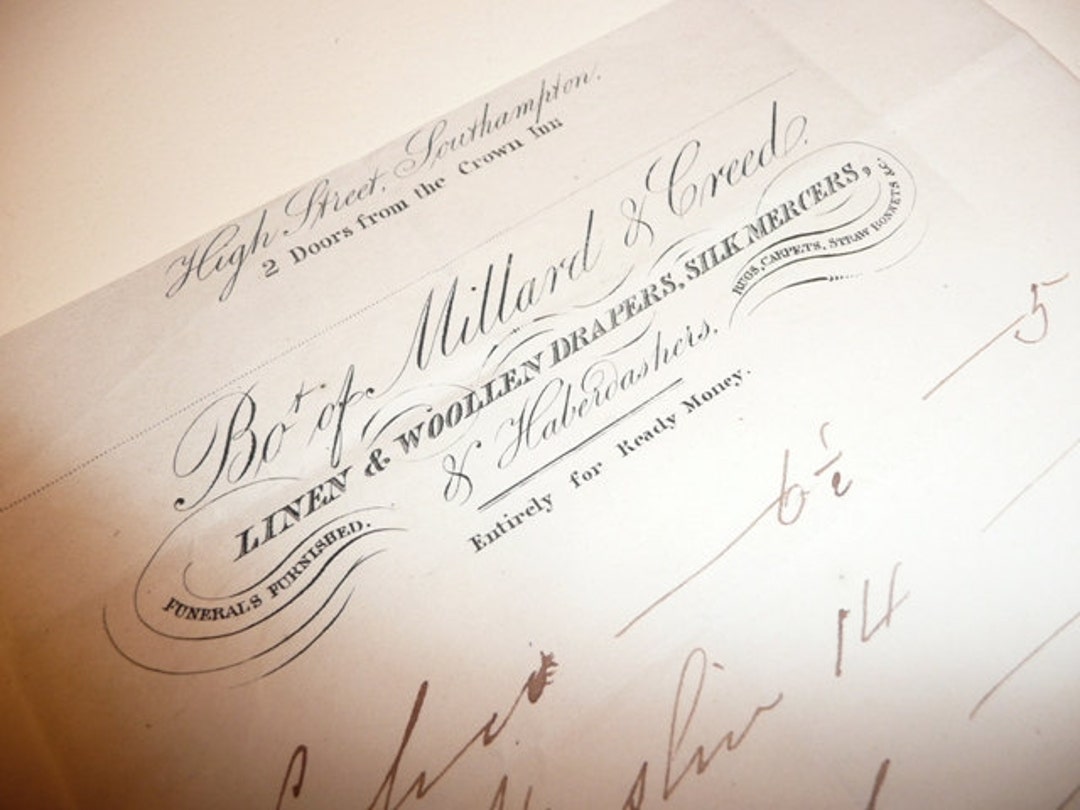 High Street, Southampton.
2 Doors from the Crown Inn
Bo.t of Millard & Creed.
LINEN & WOOLLEN DRAPERS, SILK MERCERS,
FUNERALS FURNISHED.
& Haberdashers.
RUGS, CARPETS, STRAW BONNETS &c.
Entirely for Ready Money.
5
6 1/2
14